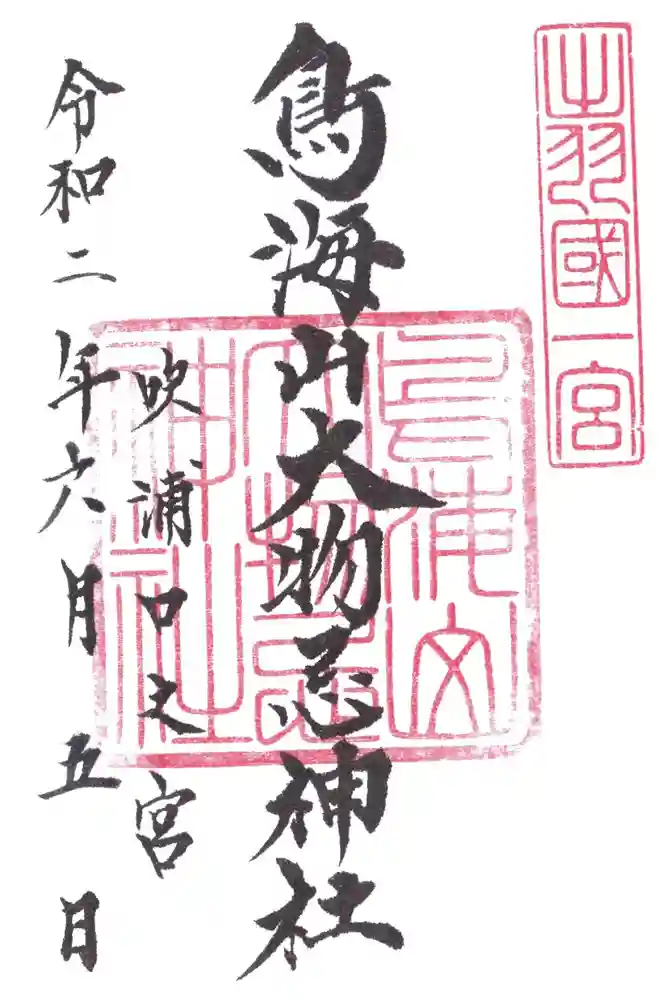 出羽國一宮
鳥海山大物忌神社
鳥海山大物忌神社
吹浦口之宮
令和二年六月五日